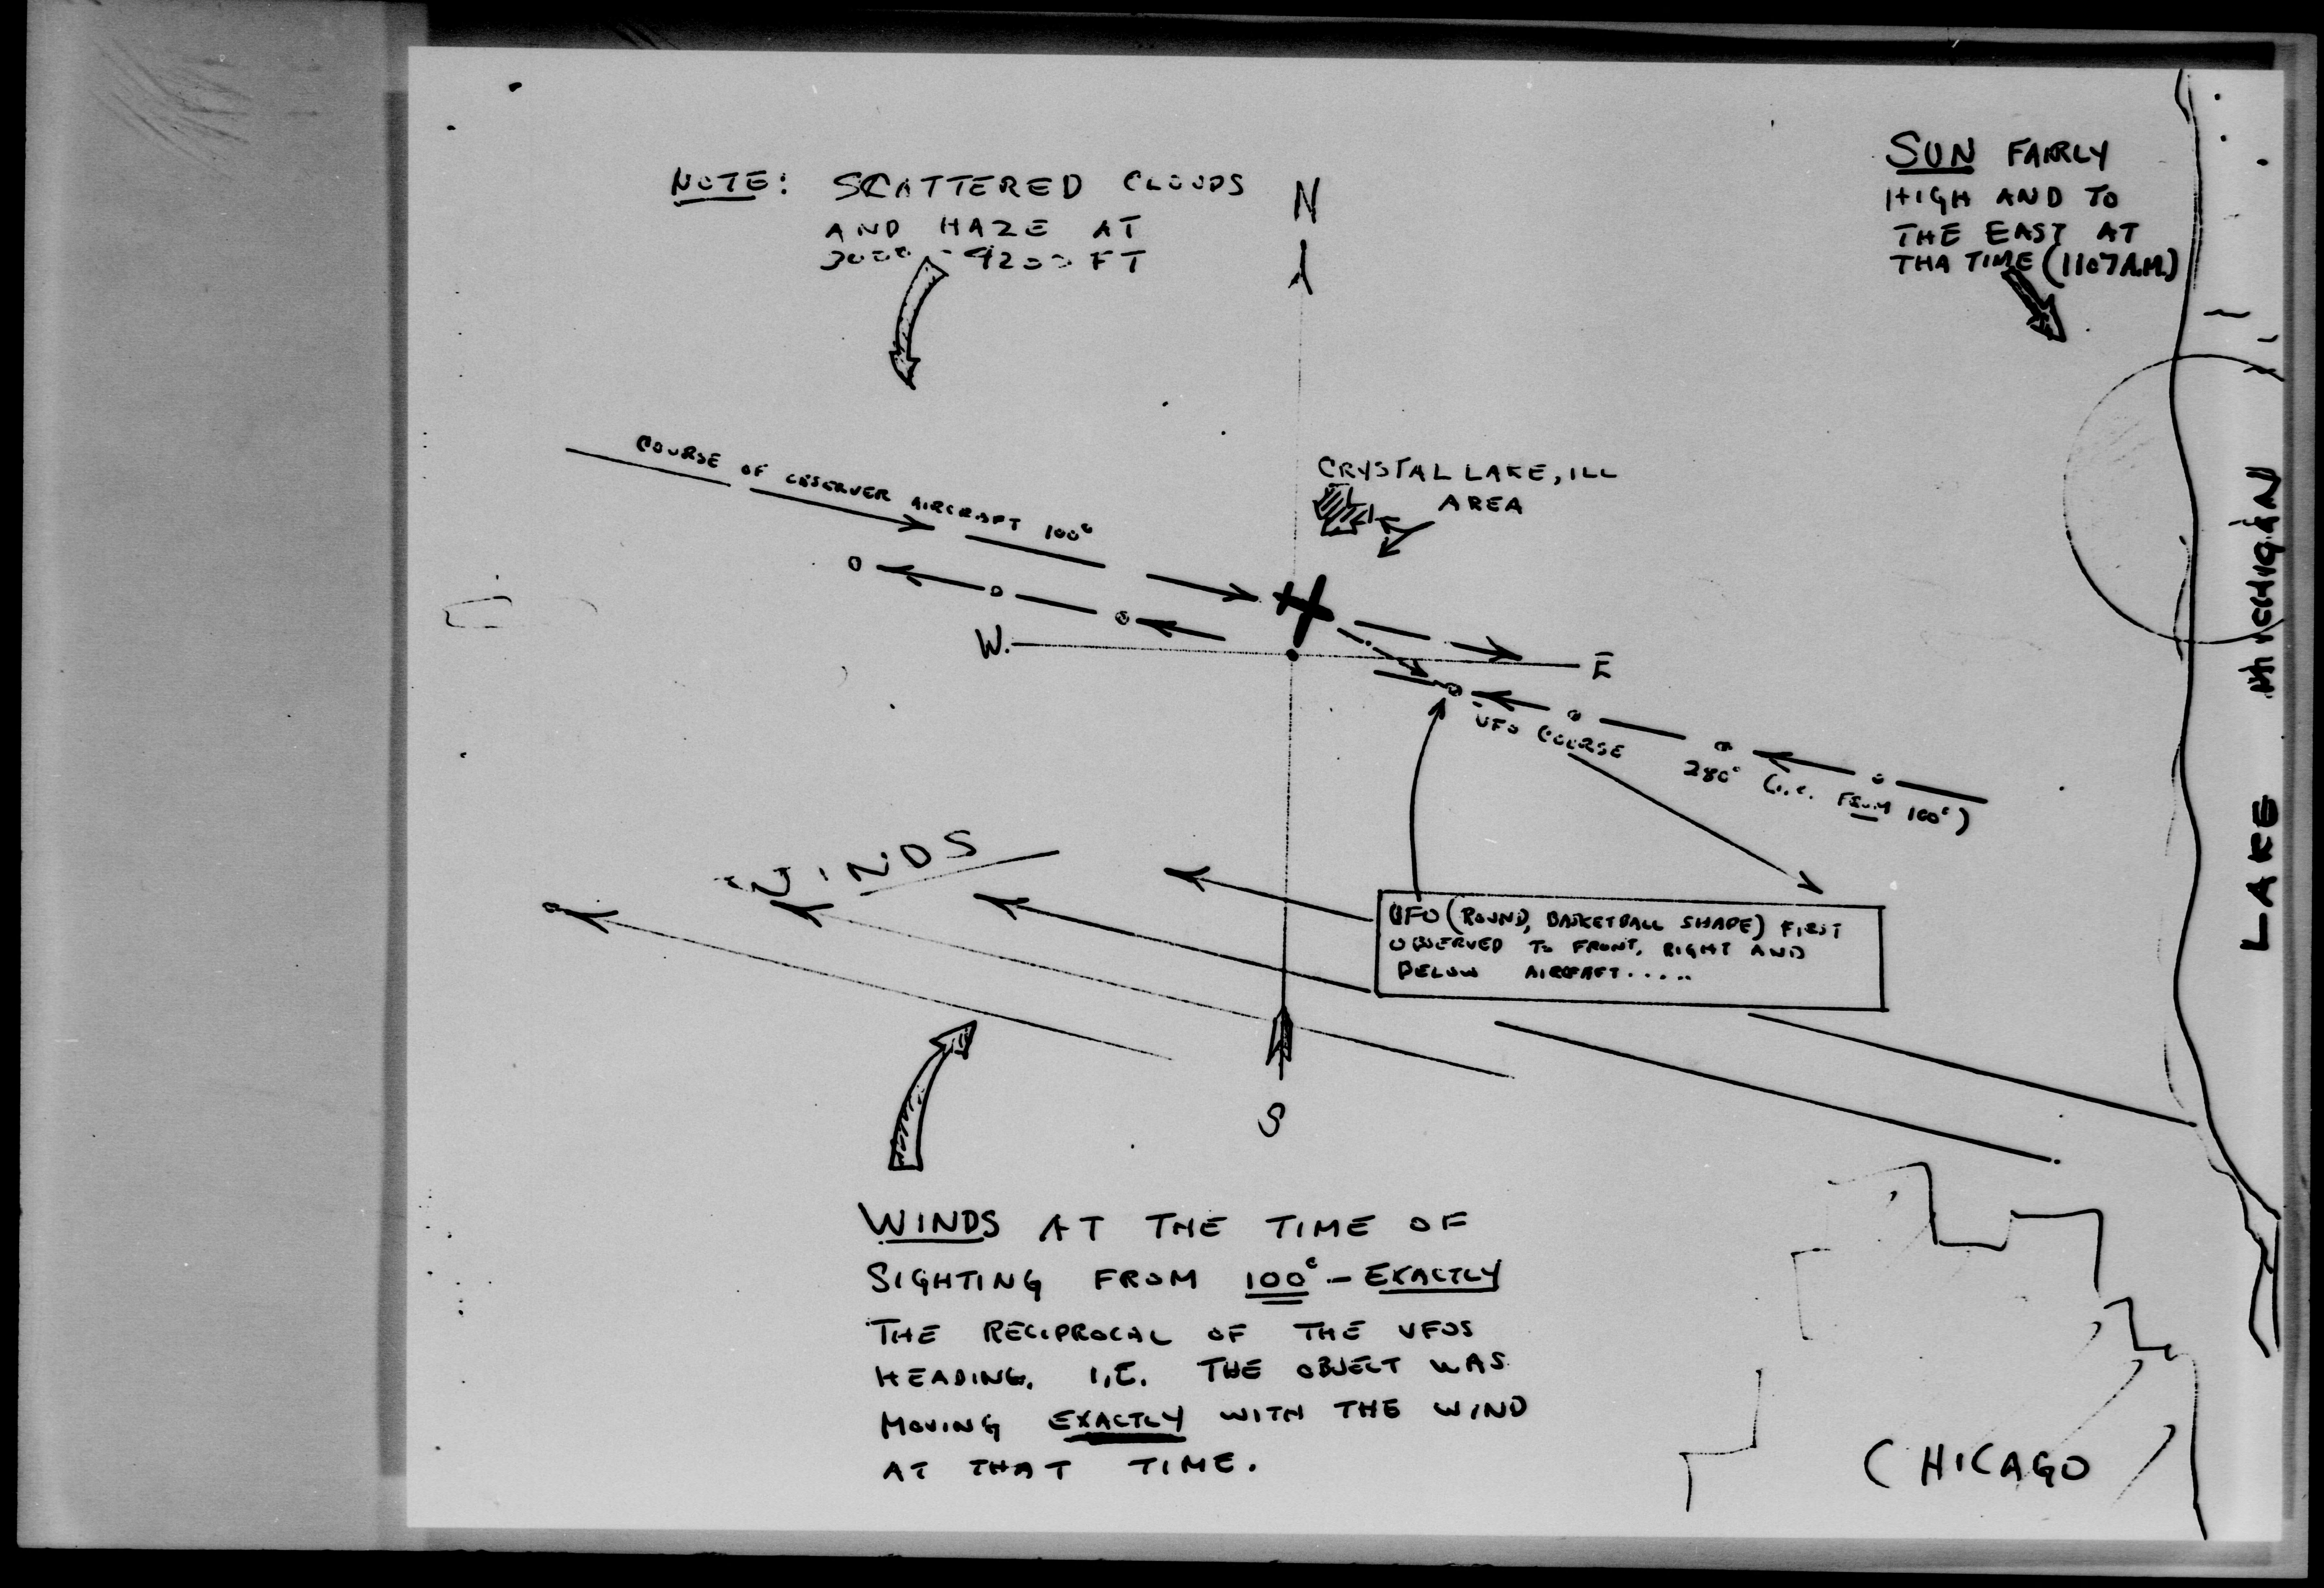 NOTE: SCATTERED CLOUDS
AND HAZE AT
3000 - 4200 FT
N
SUN FAIRLY
HIGH AND TO
THE EAST AT
THA TIME (1107 A.M.)
COURSE OF OBSERVER AIRCRAFT 100°
CRYSTAL LAKE, ILL
AREA
LAKE MICHIGAN
W.
E
UFO COURSE
280° (I.E. FROM 100°)
WINDS
UFO (ROUND, BASKETBALL SHAPE) FIRST
OBSERVED TO FRONT, RIGHT AND
BELOW AIRCRAFT.....
S
WINDS AT THE TIME OF
SIGHTING FROM 100° - EXACTLY
THE RECIPROCAL OF THE UFOS
HEADING. I,E. THE OBJECT WAS
MOVING EXACTLY WITH THE WIND
AT THAT TIME.
CHICAGO